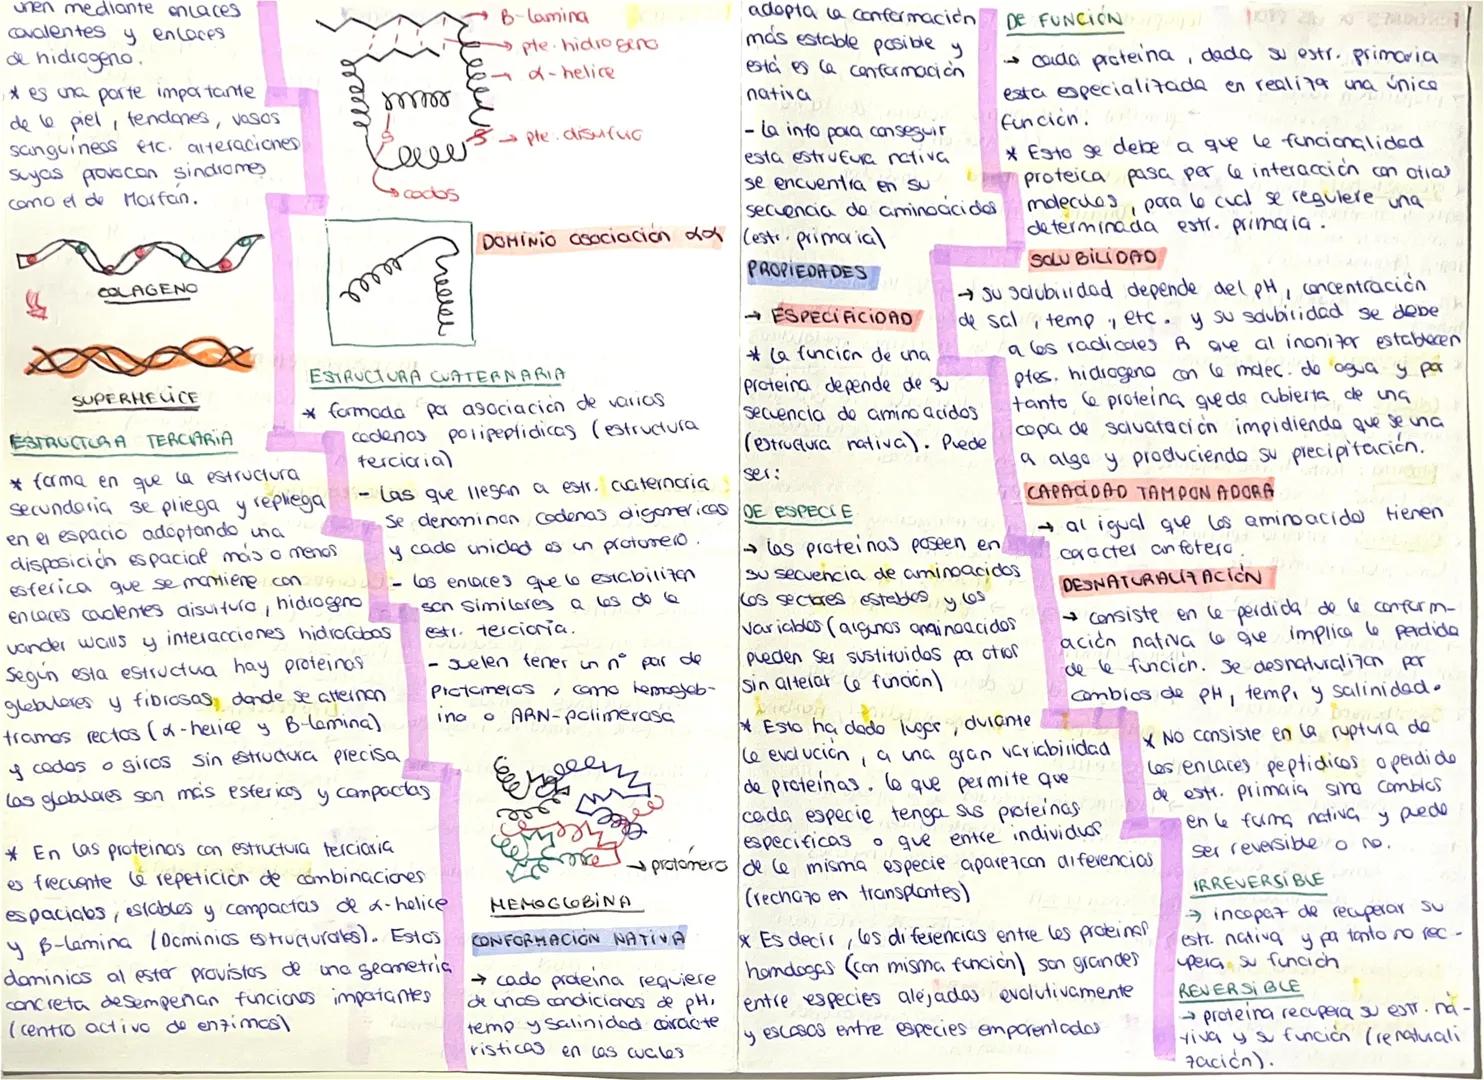 unen mediante enlaces
covalentes y enlaces
de hidrogeno.
* es una parte importante
de le piel, tendones, vasos
sanguíneos etc. alteraciones
suyas provocan síndromes
como el de Marfán.
COLAGENO
SUPERHELICE
ESTRUCTURA TERCIARIA
* forma en que la estructura
secundaria se pliega y repliega
en el espacio adoptando una
disposición espacial más o menos
esferica que se mantiene con
enlaces covalentes disulfuro, hidrogeno
vander walls y interacciones hidrofobas
Según esta estructua hay proteinas
globulares y fibrosas, donde se alternan
tramos rectos (α-helice y B-lamina)
y codos o giros sin estructura precisa
las globulares son más esfericas y compactas
* En las proteinas con estructura terciaria
es frecuente la repetición de combinaciones
espaciales, estables y compactas de α-helice
y β-lamina (Dominios estructurales). Estos
dominios al estar provistos de una geometría
concreta desempeñan funciones importantes
(centro activo de enzimas)
B-lamina
pte. hidrogeno
α-helice
pte. disulfuro
codos
DOMINIO asociación αα
ESTRUCTURA CUATERNARIA
* formada por asociación de varias
cadenas polipeptidicas (estructura
terciaria)
- Las que llegan a estr. cuaternaria
se denominan cadenas oligomericas
y cada unidad es un protomero.
- los enlaces que lo estabilizan
son similares a los de la
estr. terciaria.
- suelen tener un nº par de
protomeros, como hemoglob-
ina o ARN-polimerasa
protómero
HEMOGLOBINA
CONFORMACIÓN NATIVA
→ cada proteína requiere
de unas condiciones de pH,
temp y salinidad caracte
risticas en las cuales
adopta la conformación
más estable posible y
está es la conformación
nativa
- la info para conseguir
esta estrutura nativa
se encuentra en su
secuencia de aminoácidos
(estr. primaria)
PROPIEDADES
→ ESPECIFICIDAD
* la función de una
proteina depende de su
secuencia de aminoacidos
(estructura nativa). Puede
ser:
DE ESPECIE
→ las proteinas poseen en
su secuencia de aminoacidos
los sectores estables y los
variables (algunos aminoacidos
pueden ser sustituidos por otros
sin alterar la función)
* Esto ha dado lugar, durante
la evolución, a una gran variabilidad
de proteínas. lo que permite que
cada especie tenga sus proteínas
especificas o que entre individuos
de la misma especie aparezcan diferencias
(rechazo en transplantes)
* Es decir, las diferencias entre las proteinas
homologas (con misma función) son grandes
entre especies alejadas evolutivamente
y escasas entre especies emparentadas
DE FUNCIÓN
→ cada proteína, dada su estr. primaria
esta especializada en realizar una única
función.
* Esto se debe a que la funcionalidad
proteica pasa por la interacción con otras
moleculas, para lo cual se requiere una
determinada estr. primaria.
SOLUBILIDAD
→ su solubilidad depende del pH, concentración
de sal, temp., etc. y su solubilidad se debe
a los radicales R que al inonizar establecen
ptes. hidrogeno con la molec. de agua y por
tanto la proteína queda cubierta de una
capa de solvatación impidiendo que se una
a algo y produciendo su precipitación.
CAPACIDAD TAMPONADORA
→ al igual que los aminoacidos tienen
caracter anfotero.
DESNATURALIZACIÓN
→ consiste en la perdida de la conform-
ación nativa lo que implica la perdida
de la función. Se desnaturalizan por
cambios de pH, temp, y salinidad.
* No consiste en la ruptura de
los enlaces peptidicos o perdida
de estr. primaria sino cambios
en la forma nativa y puede
ser reversible o no.
IRREVERSIBLE
→ incapaz de recuperar su
estr. nativa y pa tanto no rec-
upera su función
REVERSIBLE
→ proteína recupera su estr. na-
tiva y su función (renaturali
zación).